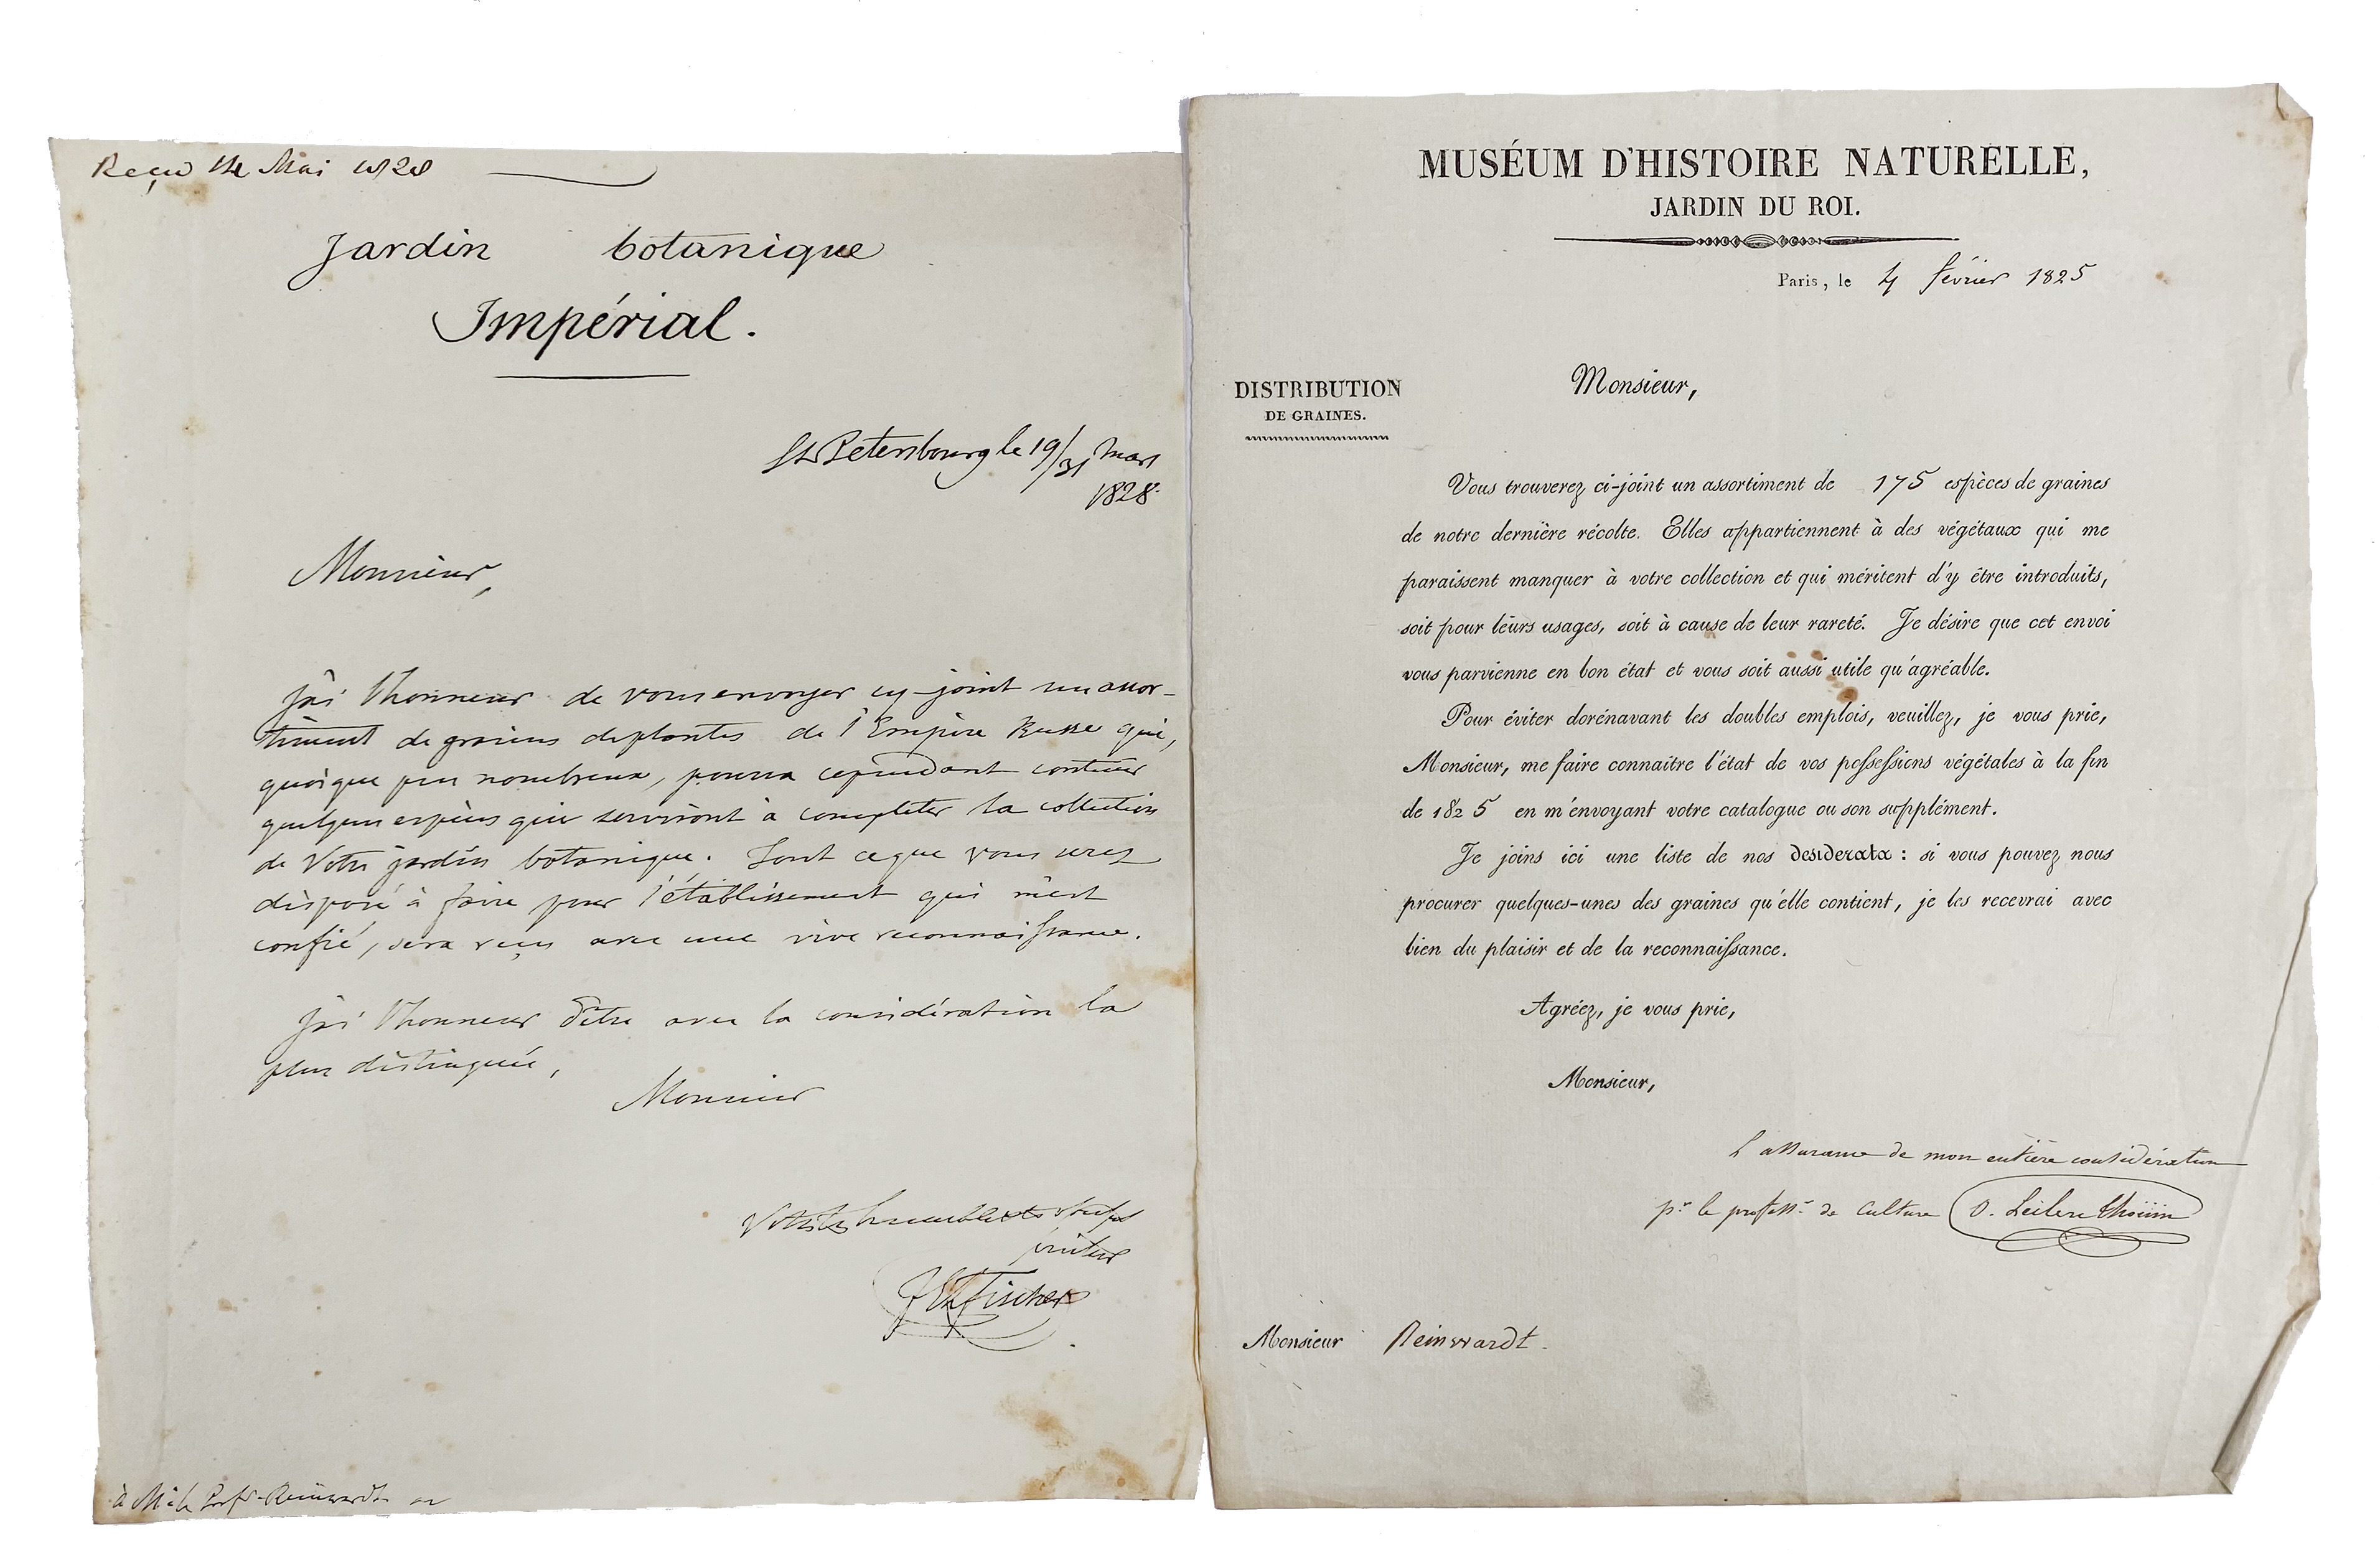 Reçu Mai 1828
Jardin botanique
Impérial.
St Petersbourg le 19/31 Mars
1828.
Monsieur,
J'ai l'honneur de vous envoyer cy-joint un assor-
timent de graines de plantes de l'Empire Russe qui,
quoique peu nombreux, pourra cependant contenir
quelques espèces qui serviront à completer la collection
de Votre jardin botanique. Tout ce que vous serez
disposé à faire pour l'établissement qui m'est
confié, sera reçu avec une vive reconnaissance.
J'ai l'honneur d'être avec la considération la
plus distinguée,
Monsieur
Fischer
à Mr le Profr Reinwardt
MUSÉUM D'HISTOIRE NATURELLE,
JARDIN DU ROI.
Paris, le 4 février 1825
DISTRIBUTION
DE GRAINES.
Monsieur,
Vous trouverez ci-joint un assortiment de 175 espèces de graines
de notre dernière récolte. Elles appartiennent à des végétaux qui me
paraissent manquer à votre collection et qui méritent d'y être introduits,
soit pour leurs usages, soit à cause de leur rareté. Je désire que cet envoi
vous parvienne en bon état et vous soit aussi utile qu'agréable.
Pour éviter dorénavant les doubles emplois, veuillez, je vous prie,
Monsieur, me faire connaitre l'état de vos possessions végétales à la fin
de 1825 en m'envoyant votre catalogue ou son supplément.
Je joins ici une liste de nos desiderata : si vous pouvez nous
procurer quelques-unes des graines qu'elle contient, je les recevrai avec
bien du plaisir et de la reconnaissance.
Agréez, je vous prie,
Monsieur,
l'assurance de mon entière considération
pr le professr de Culture O. Leclerc Thoüin
Monsieur Reinwardt.